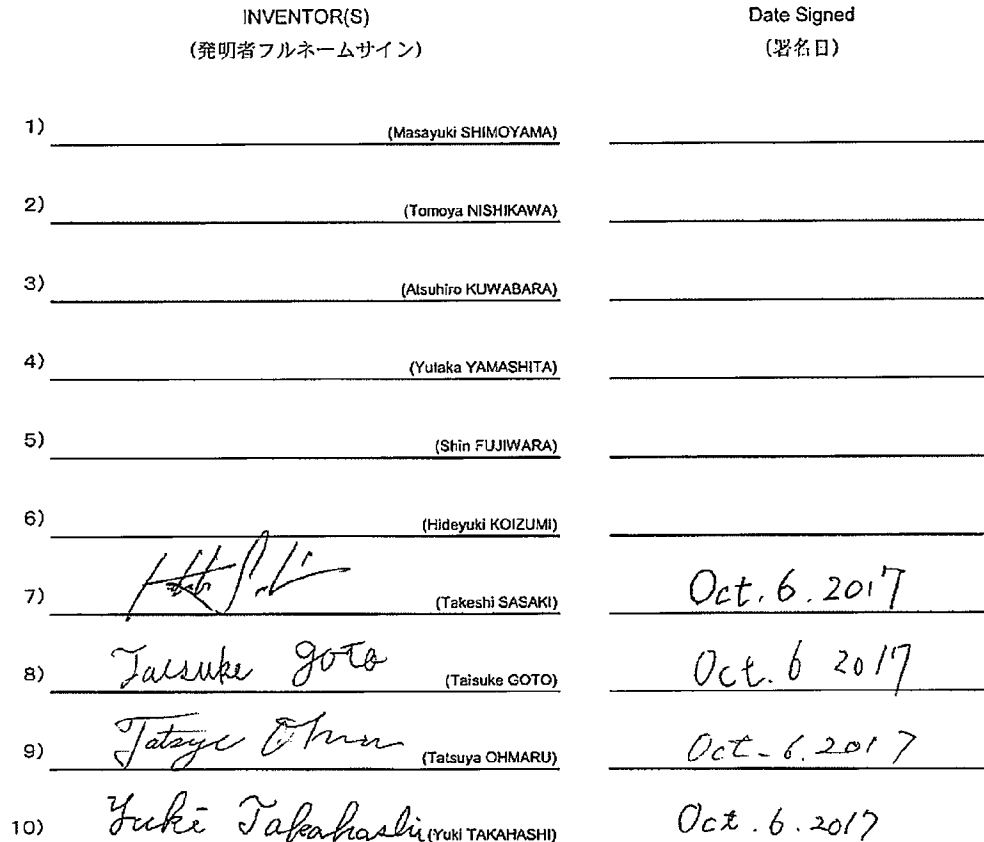 INVENTOR(S) Date Signed
(発明者フルネームサイン) (署名日)
1) (Masayuki SHIMOYAMA)
2) (Tomoya NISHIKAWA)
3) (Atsuhiro KUWABARA)
4) (Yutaka YAMASHITA)
5) (Shin FUJIWARA)
6) (Hideyuki KOIZUMI)
7) (Takeshi SASAKI) Oct. 6. 2017
8) Taisuke goto (Taisuke GOTO) Oct. 6 2017
9) (Tatsuya OHMARU) Oct. 6. 2017
10) Yuki Takahashi (Yuki TAKAHASHI) Oct. 6. 2017